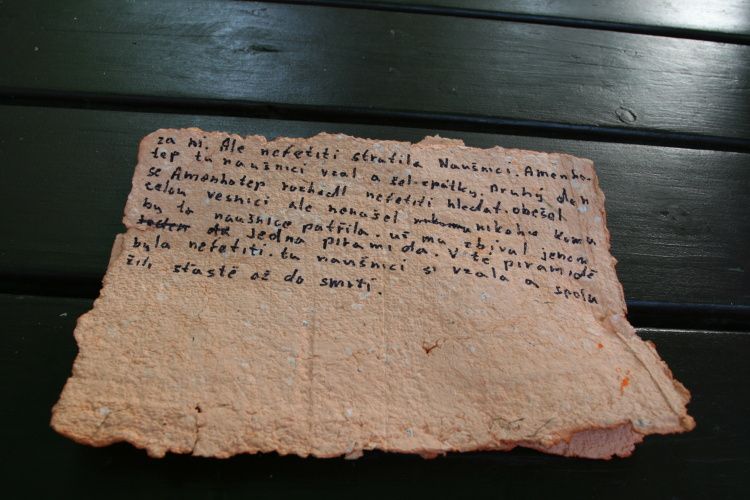 za ní. Ale nefetiti stratila Naušnici. Amenho-
tep tu naušnici vzal a šel zpátky. Druhý den
se Amenhotep rozhodl nefetiti hledat. obešel
celou vesnici ale nenašel nikoho komu
by ta naušnice patřila. už mu zbíval jenom
jedna piramida. V té piramidě
byla nefetiti. tu naušnici si vzala a spolu
žili stastě až do smrti.